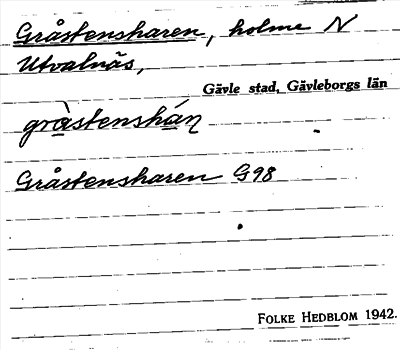 Gråstensharen, holme N
Utvalnäs,
Gävle stad, Gävleborgs län
gràstenshán
Gråstensharen G98
FOLKE HEDBLOM 1942.